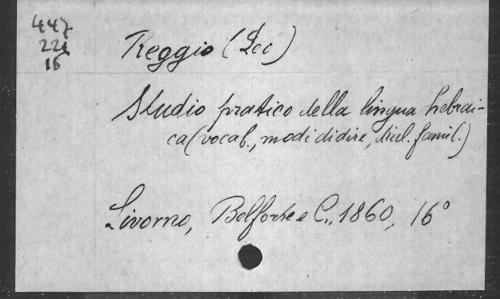 447
221
16
Reggio (Leo)
Studio pratico della lingua hebrai-
ca (vocab., modi di dire, famil.)
Livorno, Belforte e C., 1860, 16°